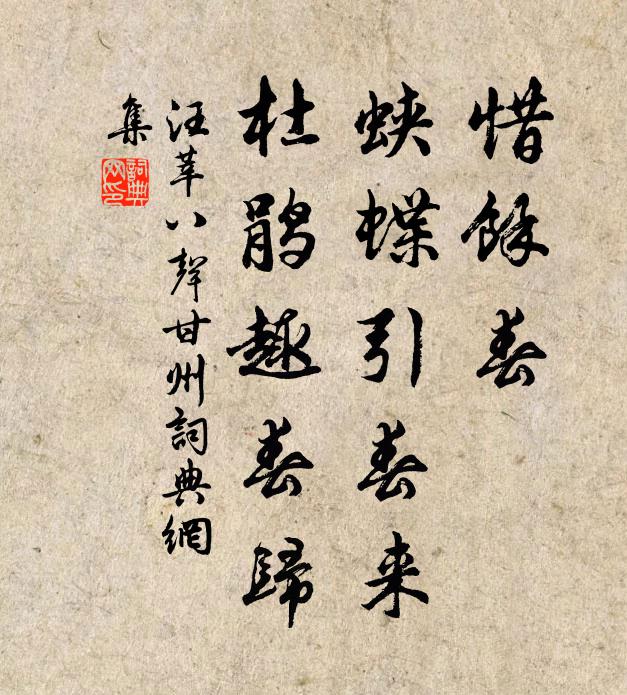 惜餘春
蛺蝶引春来
杜鹃趣春歸
汪莘八聲甘州詞典網
集
詞典
网印